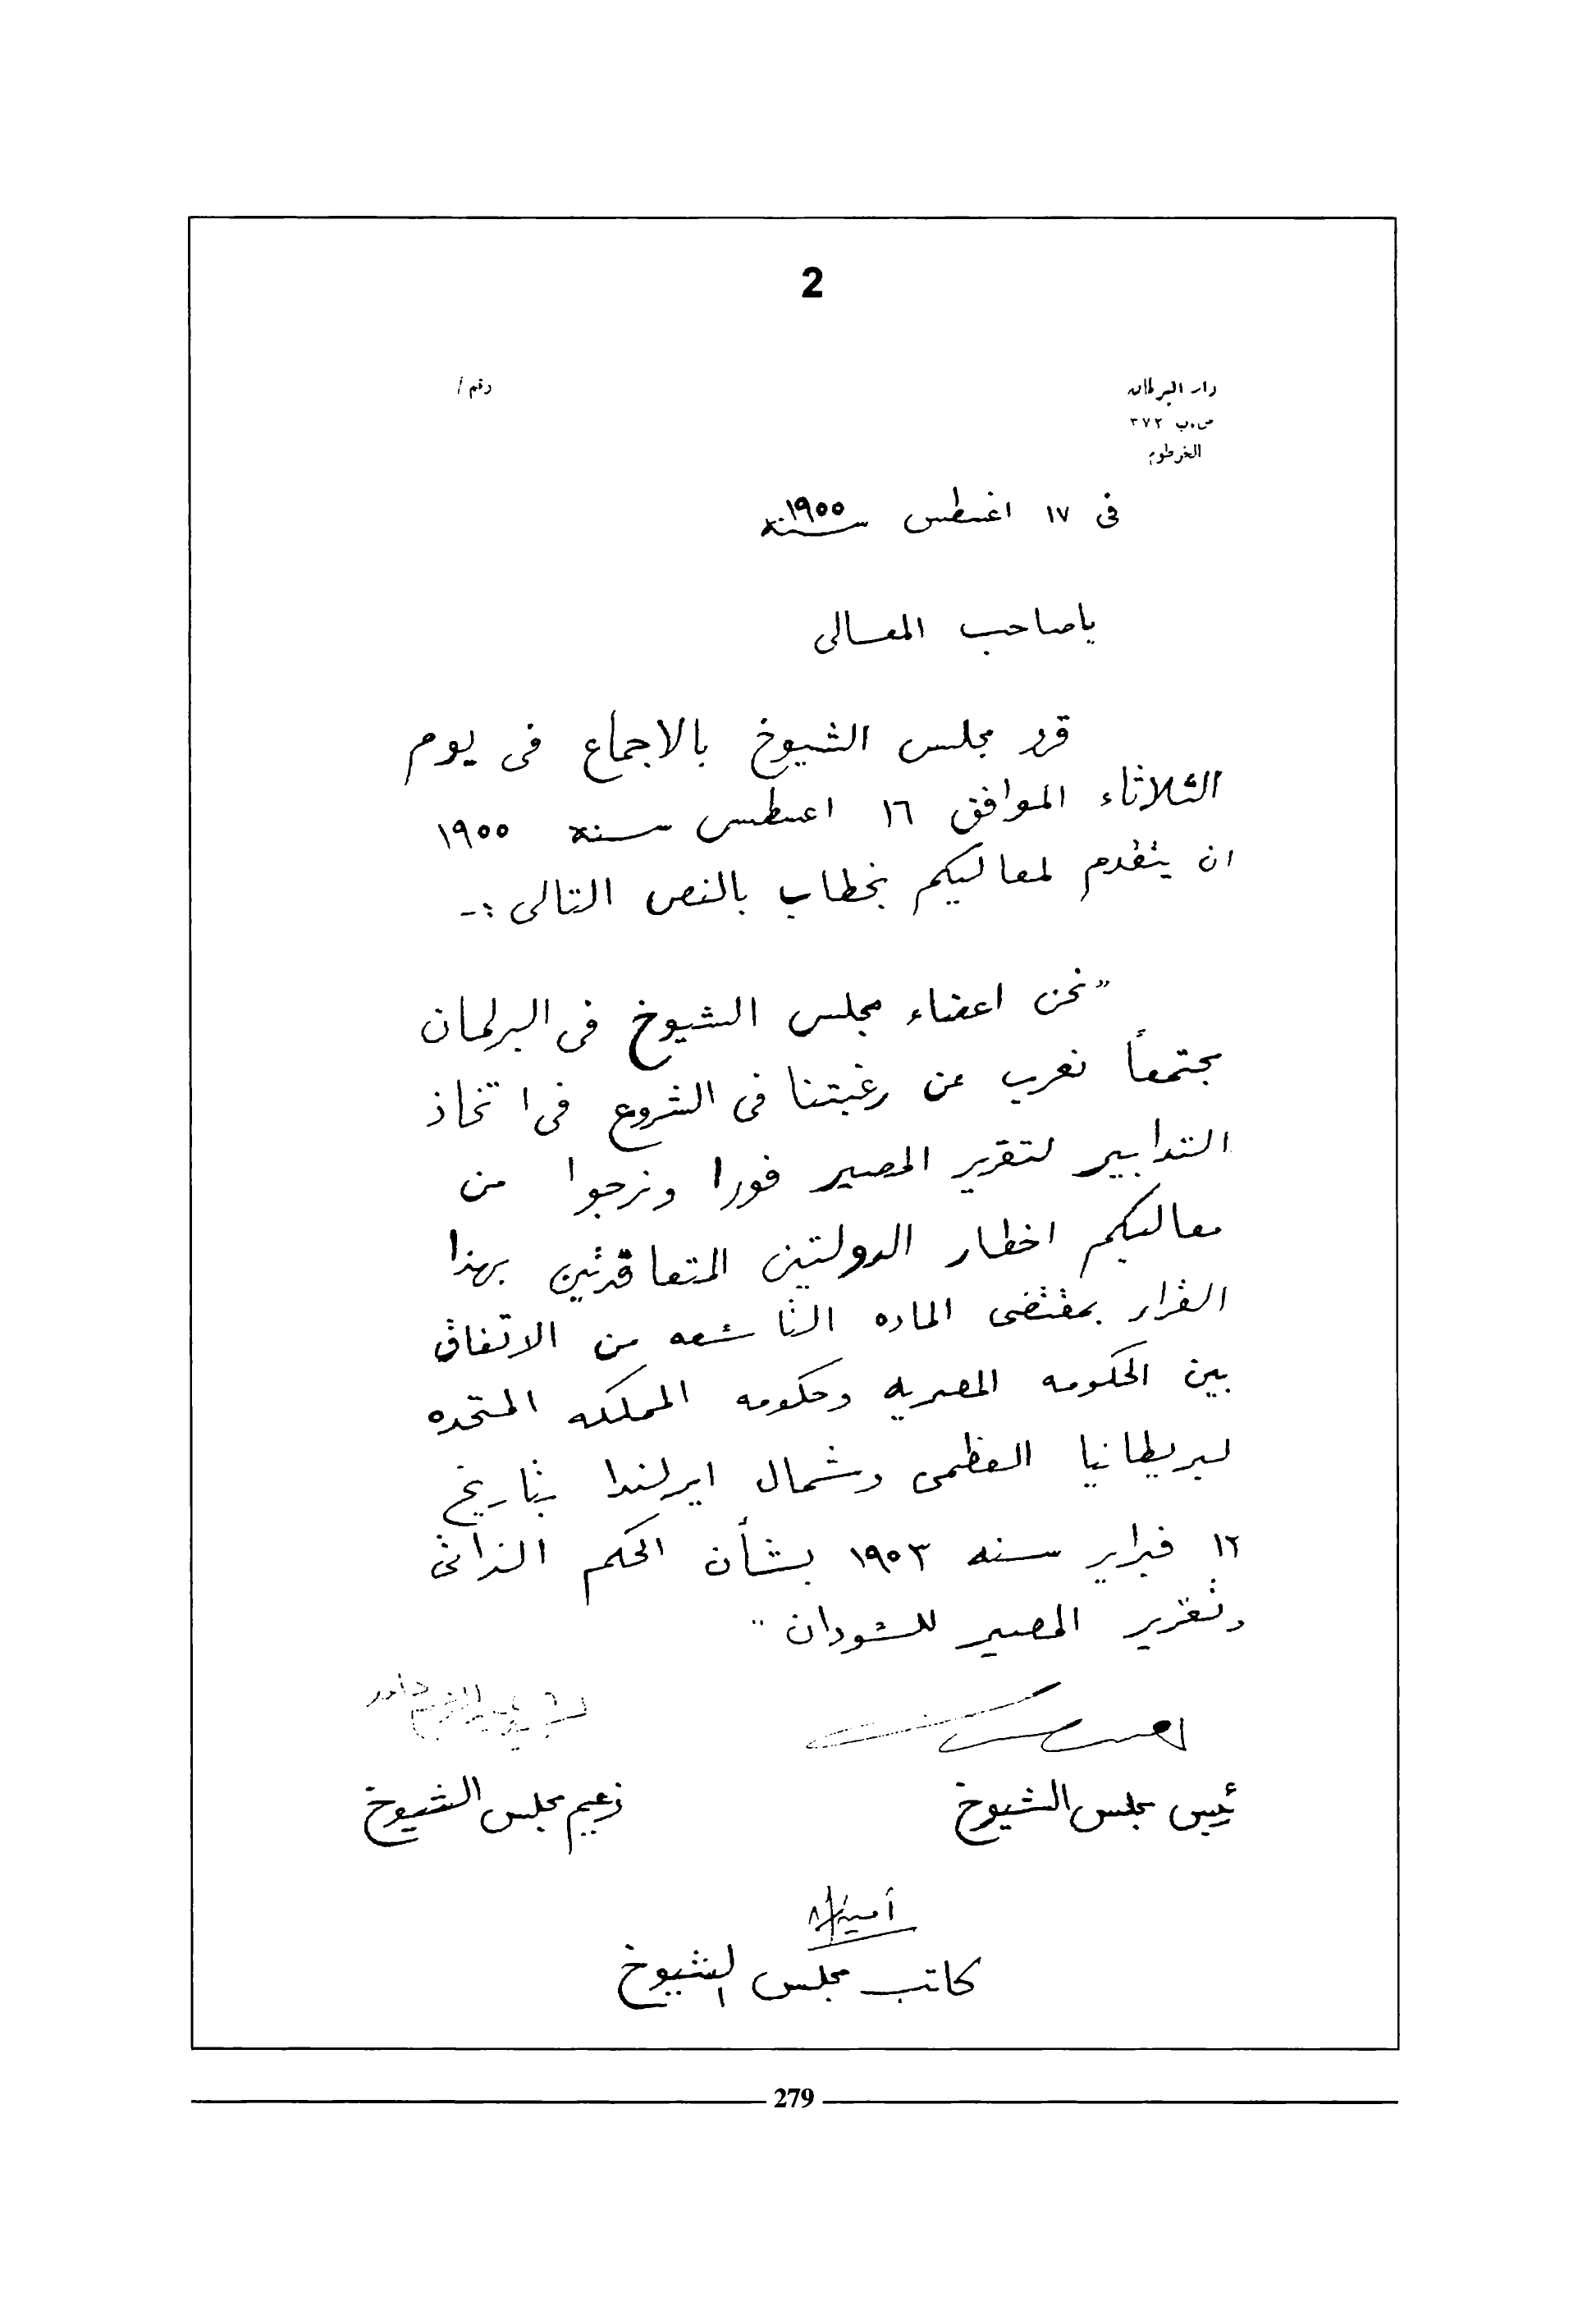 2
دار البرلمان
رقم /
ص.ب ٣٧٢
الخرطوم
فى ١٧ اغسطس سنة ١٩٥٥
ياصاحب المعالى
قرر مجلس الشيوخ بالاجماع فى يوم
الثلاثاء الموافق ١٦ اغسطس سنة ١٩٥٥
ان يتقدم لمعاليكم بخطاب بالنص التالى :-
"نحن اعضاء مجلس الشيوخ فى البرلمان
مجتمعاً نعرب عن رغبتنا فى الشروع فى اتخاذ
التدابير لتقرير المصير فورا ونرجوا من
معاليكم اخطار الدولتين المتعاقدتين بهذا
القرار بمقتضى الماده التاسعه من الاتفاق
بين الحكومه المصريه وحكومه المملكه المتحده
لبريطانيا العظمى وشمال ايرلندا بتاريخ
١٢ فبراير سنه ١٩٥٣ بشأن الحكم الذاتى
وتقرير المصير للسودان"
ئيس مجلس الشيوخ
زعيم مجلس الشيوخ
كاتب مجلس الشيوخ
279